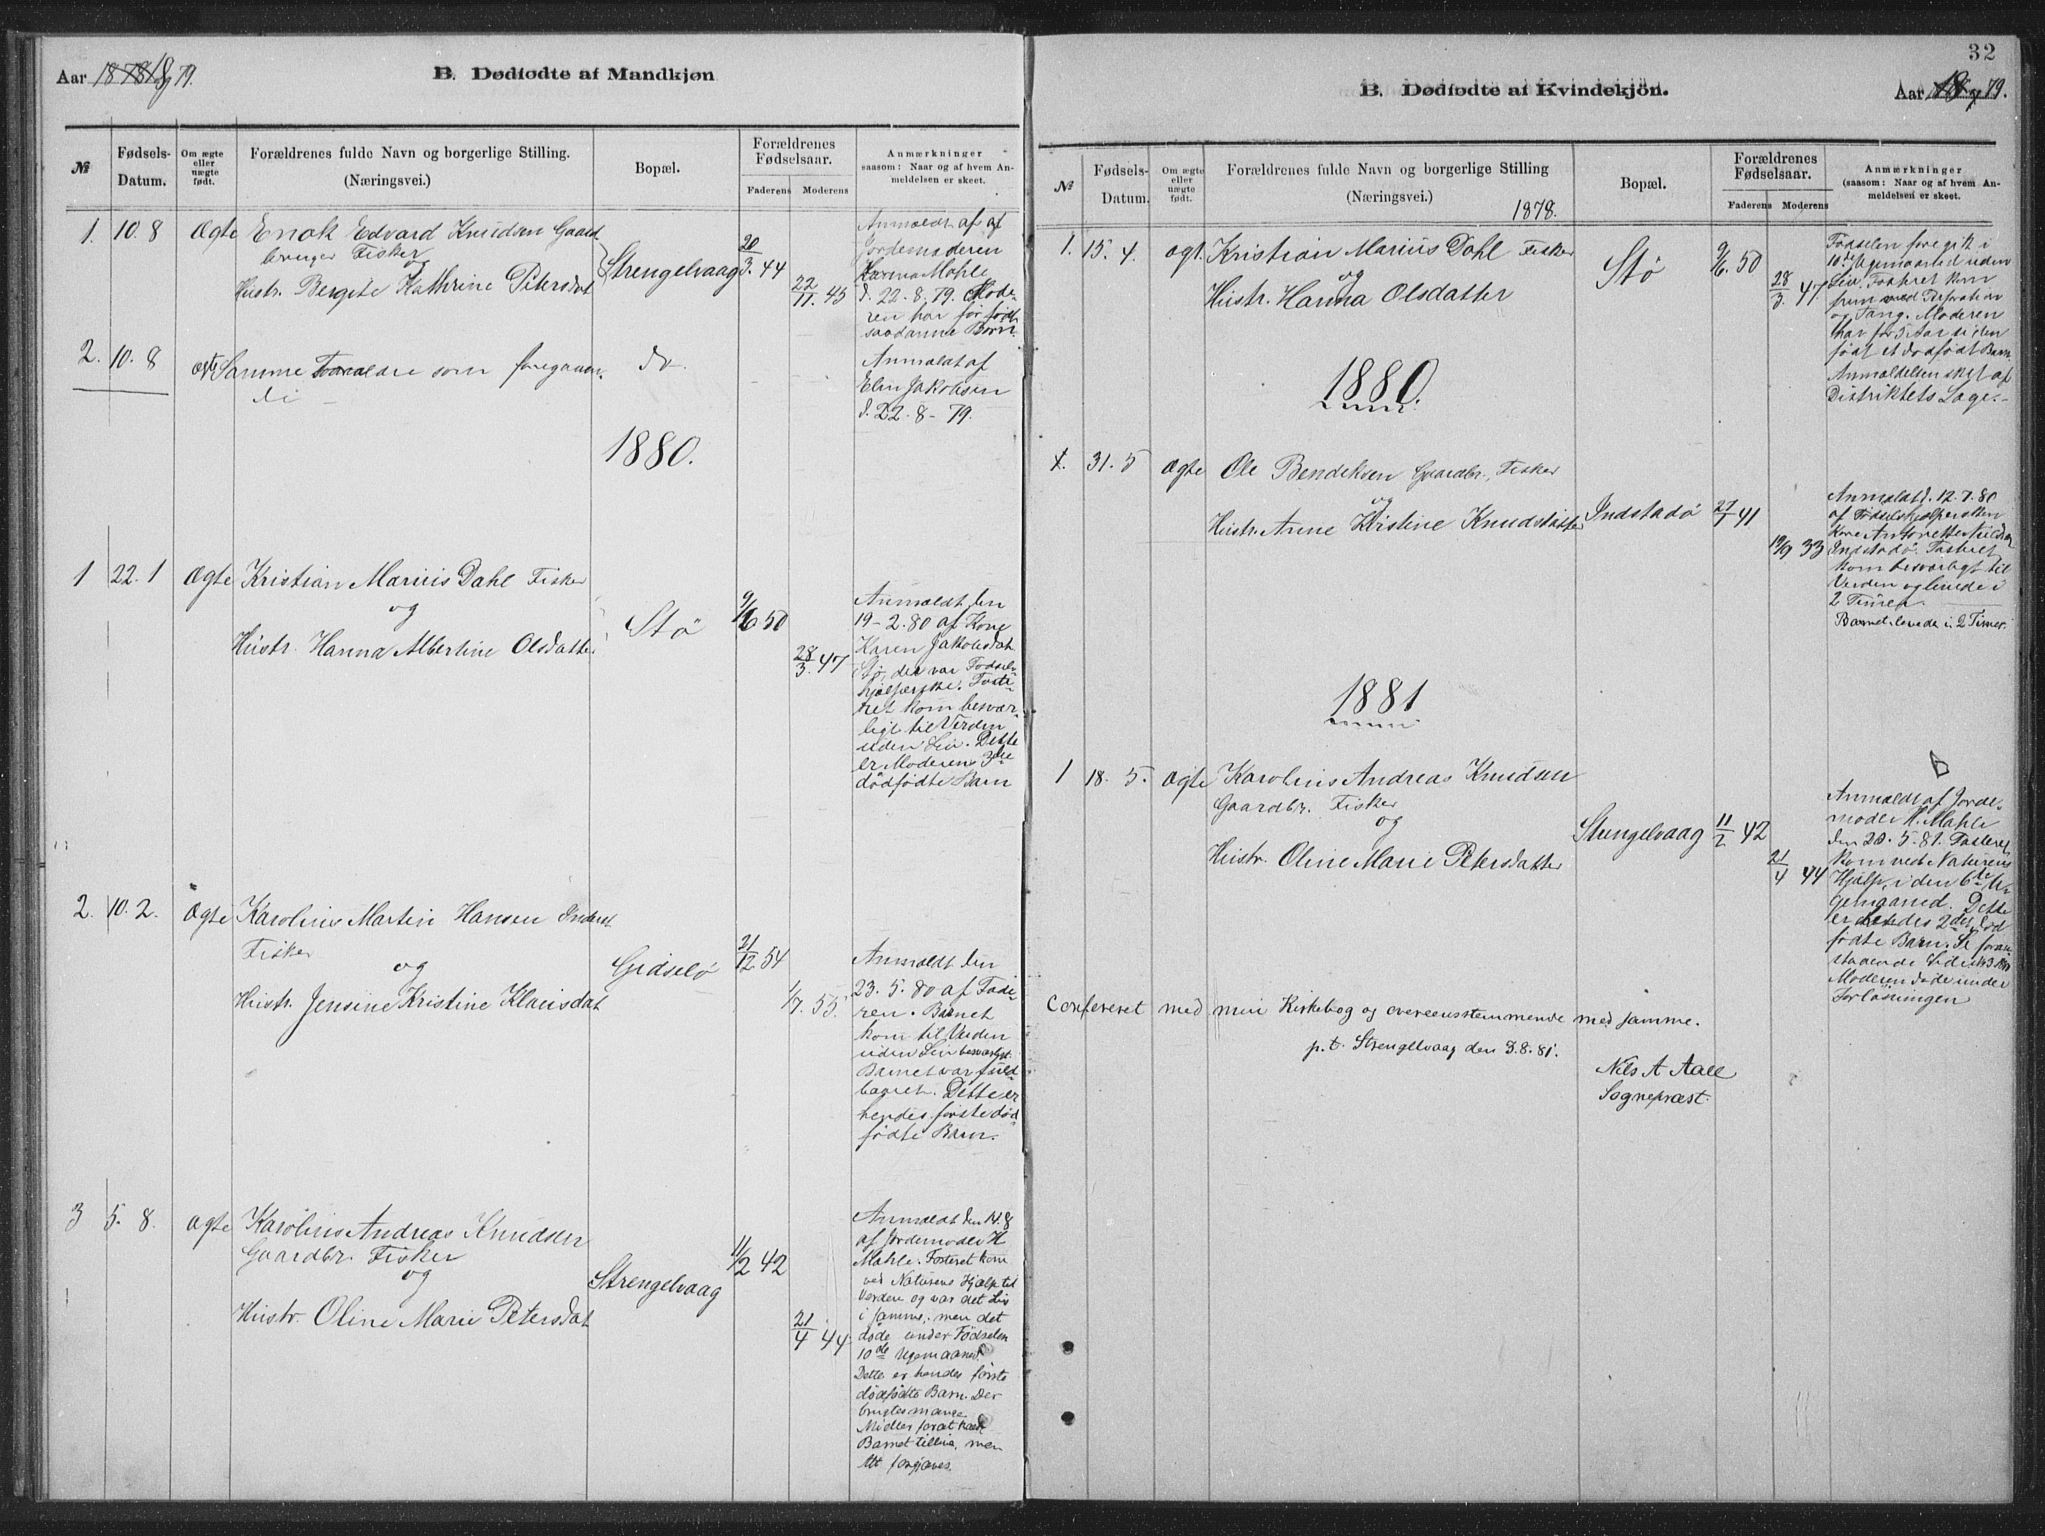 Aar 1878 og 79.
B. Dødfødte af Mandkjøn
№
Fødsels-Datum.
Om ægte eller uægte født.
Forældrenes fulde Navn og borgerlige Stilling.
(Næringsvei.)
Bopæl.
Forældrenes Fødselsaar.
Faderens Moderens
Anmærkninger
saasom: Naar og af hvem An-
meldelsen er skeet.
1. 10. 8 Ægte Enok Edvard Knudsen Gaard
bruger Fisker
og
Hustr. Bergite Kathrine Petersdat
Strengelvaag
20/3. 44
22/11. 45
Anmeldt af af
Jordemoderen
Mahle
d. 22. 8. 79. Mode-
ren har før født
saadanne Børn.
2. 10. 8 ægte Samme Forældre som foregaaen-
di
do.
Anmeldt af
Elen Jakobsen
d. 22. 8 - 79.
1880.
1 22. 1 Ægte Kristian Marius Dahl Fisker
og
Hustr. Hanna Albertine Olsdatter
Stø
9/6 50
28/3. 47
Anmeldt den
19 - 2. 80 af Kone
Karen Jakobsdat
Stø, der var Fødsels-
hjælperske. Foste-
ret kom besvær-
ligt til Verden
uden Liv. Dette
er Moderens 3die
dødfødte Barn
2. 10. 2. Ægte Karolius Martin Hansen Inderst
Fisker
og
Hustr. Jensine Kristine Klausdat
Gidselø
21/12 54
1/7. 55.
Anmeldt den
23. 5. 80 af Fade-
ren. Barnet
kom til Verden
uden Liv besværligt.
Barnet var fuld-
baaret. Dette er
hendes første død-
fødte Barn.
3 5. 8. Ægte Karolius Andreas Knudsen
Gaardbr. Fisker
og
Hustr. Oline Marie Petersdat
Strengelvaag
11/2 42
21/4 44
Anmeldt den 14. 8
af Jordemoder H
Mahle. Fosteret kom
ved Naturens Hjælp til
Verden og var det Liv
i samme, men det
døde under Fødselen
10de Ugemaaned.
Dette er hendes første
dødfødte Barn. Der
brugtes mange
Midler forat kalde
Barnet tillive, men
Alt forgjæves.
32
B. Dødfødte af Kvindekjön.
Aar 1878 og 79.
№
Fødsels-Datum.
Om ægte eller uægte født.
Forældrenes fulde Navn og borgerlige Stilling
(Næringsvei.)
Bopæl.
Forældrenes Fødselsaar.
Faderens Moderens
Anmærkninger
(saasom: Naar og af hvem An-
meldelsen er skeet.
1878.
1. 15. 4. ægt. Kristian Marius Dahl Fisker
og
Hustr. Hanna Olsdatter
Stø
9/6. 50
28/3. 47.
Fødselen foregik i
10de Ugemaaned uden
Liv. Fosteret kom
frem med
og Tang. Moderen
har for 5 Aar siden
født et dødfødt Barn
Anmeldelsen skeet af
Distriktets Læge.-
1880.
1. 31. 5 ægte Ole Bendiksen Gaardbr. Fisker
og
Hustr. Anne Kristine Knudsdatter
Indstadø
27/7 41
19/9 33
Anmeldt d. 12. 7. 80
af Fødselshjælpersken
Kone Antonette Nilsdat
Indstadø. Fosteret
kom besværligt til
Verden og levede i
2 Timer.
Barnet levede i 2 Timer.
1881
1 18. 5. ægte Karolius Andreas Knudsen
Gaardbr. Fisker
og
Hustr. Oline Marie Petersdatter
Strengelvaag
11/2 42
21/4 44
Anmeldt af Jorde-
moder H. Mahle
den 20. 5. 81. Fosteret
kom ved Naturens
Hjælp, i den 6te U-
gemaaned. Dette
er hendes 2det Død
fødte Barn. Se foran
staaende Side № 3.
Moderen døde under
Forløsningen
Confereret med min Kirkebog og overeensstemmende med samme.
p. t. Strengelvaag den 3. 8. 81.
Nils A Aall
Sognepræst.